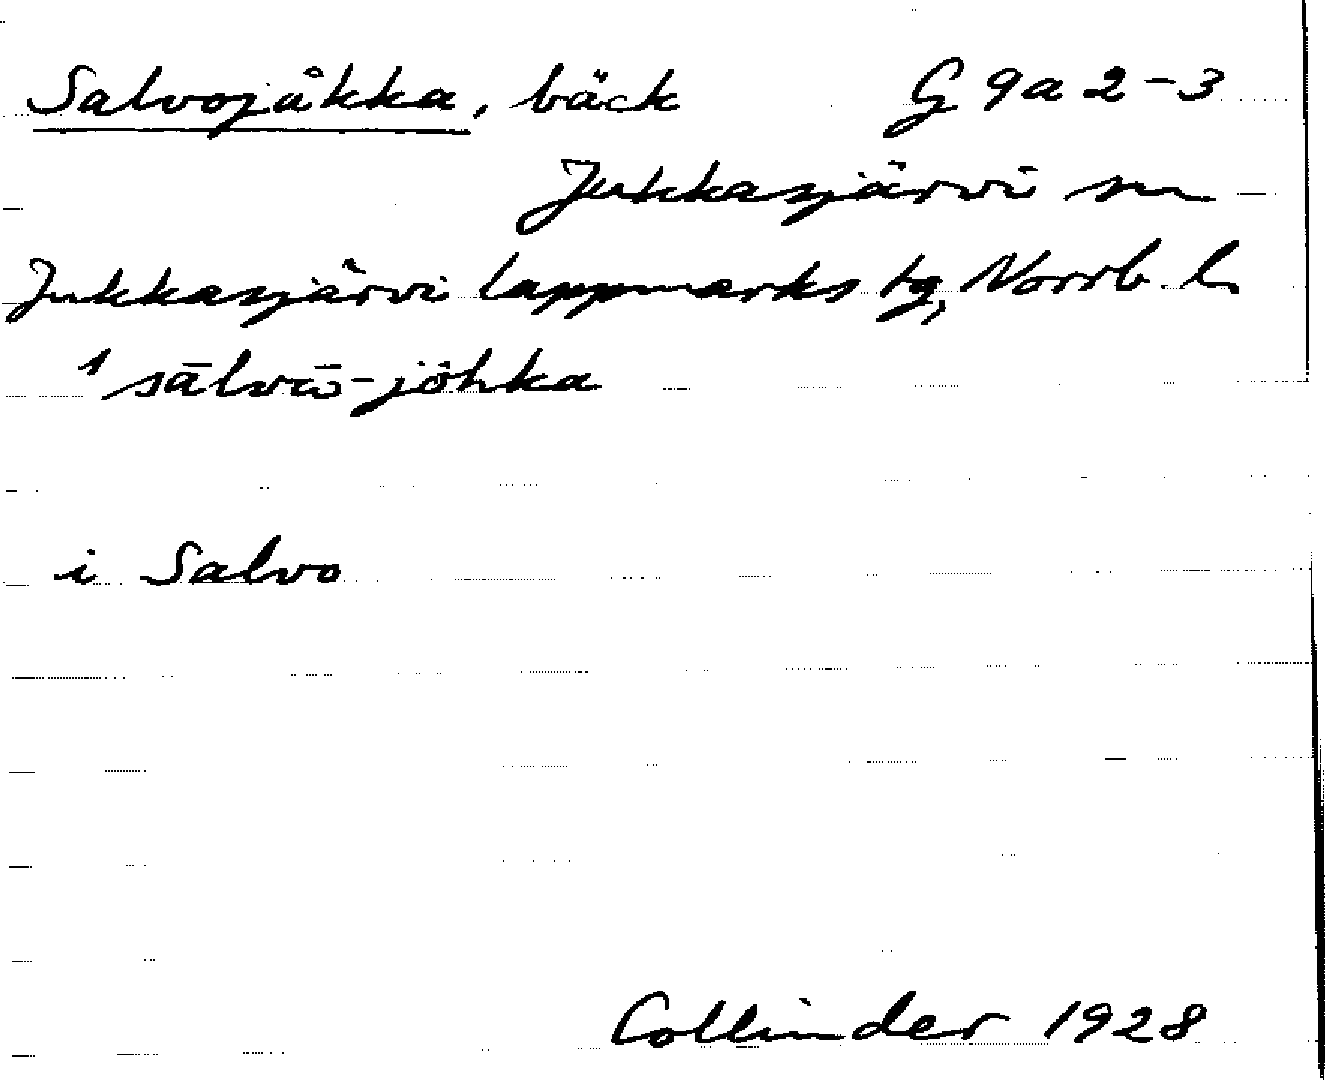 Salvojåkka, bäck G 9a 2-3
Jukkasjärvi sn
Jukkasjärvi lappmarks tg, Norrb. l.
¹ sālvū-jōhka
i Salvo
Collinder 1928